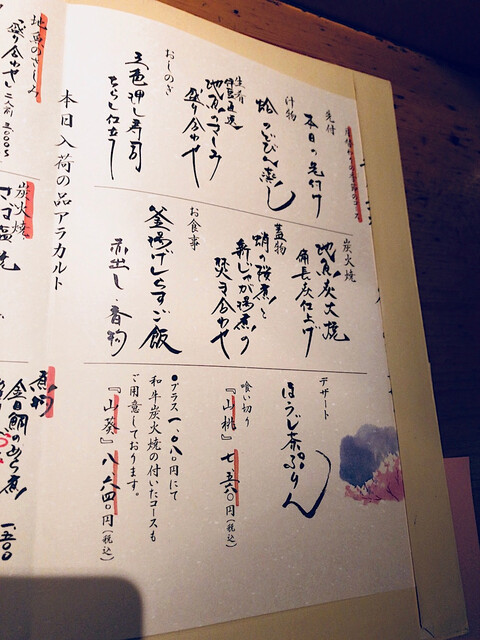 先付
本日の先付け
汁物
蛤のどびん蒸し
生肴
地魚のさしみ
盛り合わせ
おしのぎ
三色押し寿司
ちらし仕立て
炭火焼
地魚炭火焼
備長炭仕上げ
蓋物
蛸の桜煮と
新じゃが揚煮の
焚き合わせ
お食事
釜揚げしらすご飯
赤出し・香物
デザート
ほうじ茶ぷりん
喰い切り
『山桃』七、五六〇円(税込)
●プラス一、〇八〇円にて
和牛炭火焼の付いたコースも
ご用意しております。
『山葵』八、六四〇円(税込)
本日入荷の品アラカルト
地魚のさしみ
盛り合わせ 二人前
炭火焼
煮物
金目鯛のあら煮
一、五〇〇